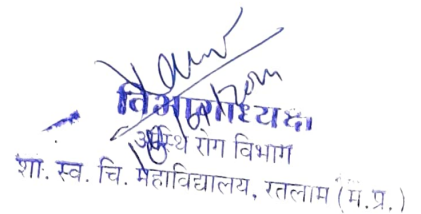 विभागाध्यक्ष
अस्थि रोग विभाग
शा. स्व. चि. महाविद्यालय, रतलाम (म.प्र.)